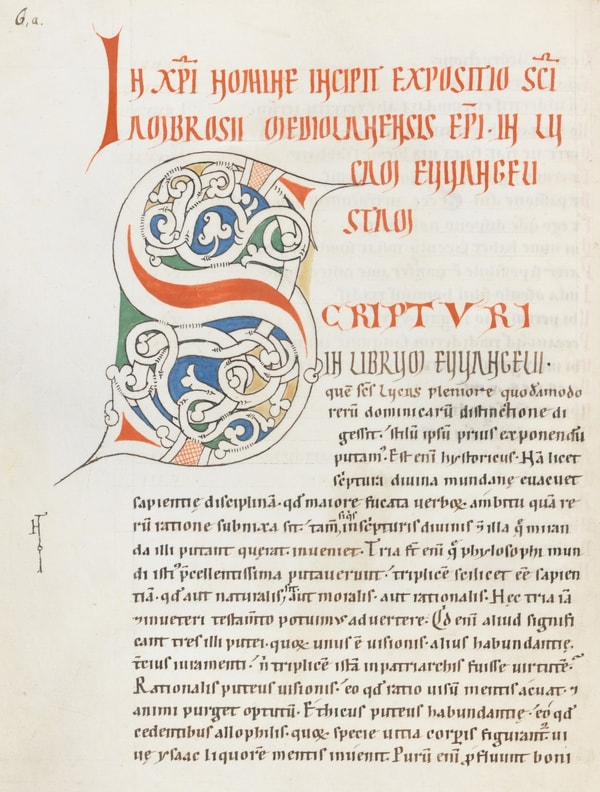 6,a.
IN XP̅I NOMINE INCIPIT EXPOSITIO SC̅I
AMBROSII MEDIOLANENSIS EP̅I· IN LU
CAM EUUANGELI
STAM
SCRIPTURI
IN LIBRUM EUUANGELII·
quē sc̄s lucas pleniore quodāmodo
rerū dominicarū distinctione di
gessit· stilū ipsū prius exponendū
putam᾽· Est eni᷒ hystoricus· Nā licet
sc̄ptura divina mundanę evacuet
sapientię disciplinā· qđ maiore fucata verboꝝ ambitu quā re
rū ratione subnixa sit· tam̄ siq̄s in sc̄pturis divinis
da illi putant querat· inveniet· Tria st̄ eni᷒ q̄ phylosophi mun
di isti p̄cellentissima putaverunt· triplicē scilicet eē sapien
tiā· qđ aut naturalis sit· aut moralis· aut rationalis· Hęc tria iā
inveteri testam̄to potuim᾽ advertere· Qđ eni᷒ aliud signifi
cant tres illi putei· quoꝝ unus ē visionis· alius habundantię·
t̄cius iuramenti· n̄ triplicē istā inpatriarchis fuisse virtutē·
Rationalis puteus visionis· eo qđ ratio visū mentis acuat· ⁊
animi purget optutū· Ethicus puteus habundantię· eo qđ
cedentibus allophilis· quoꝝ specie vitia corp̄is figurant᷑· vi
vę ysaac liquorē mentis invenit· Purū eni᷒ p̄fluunt boni